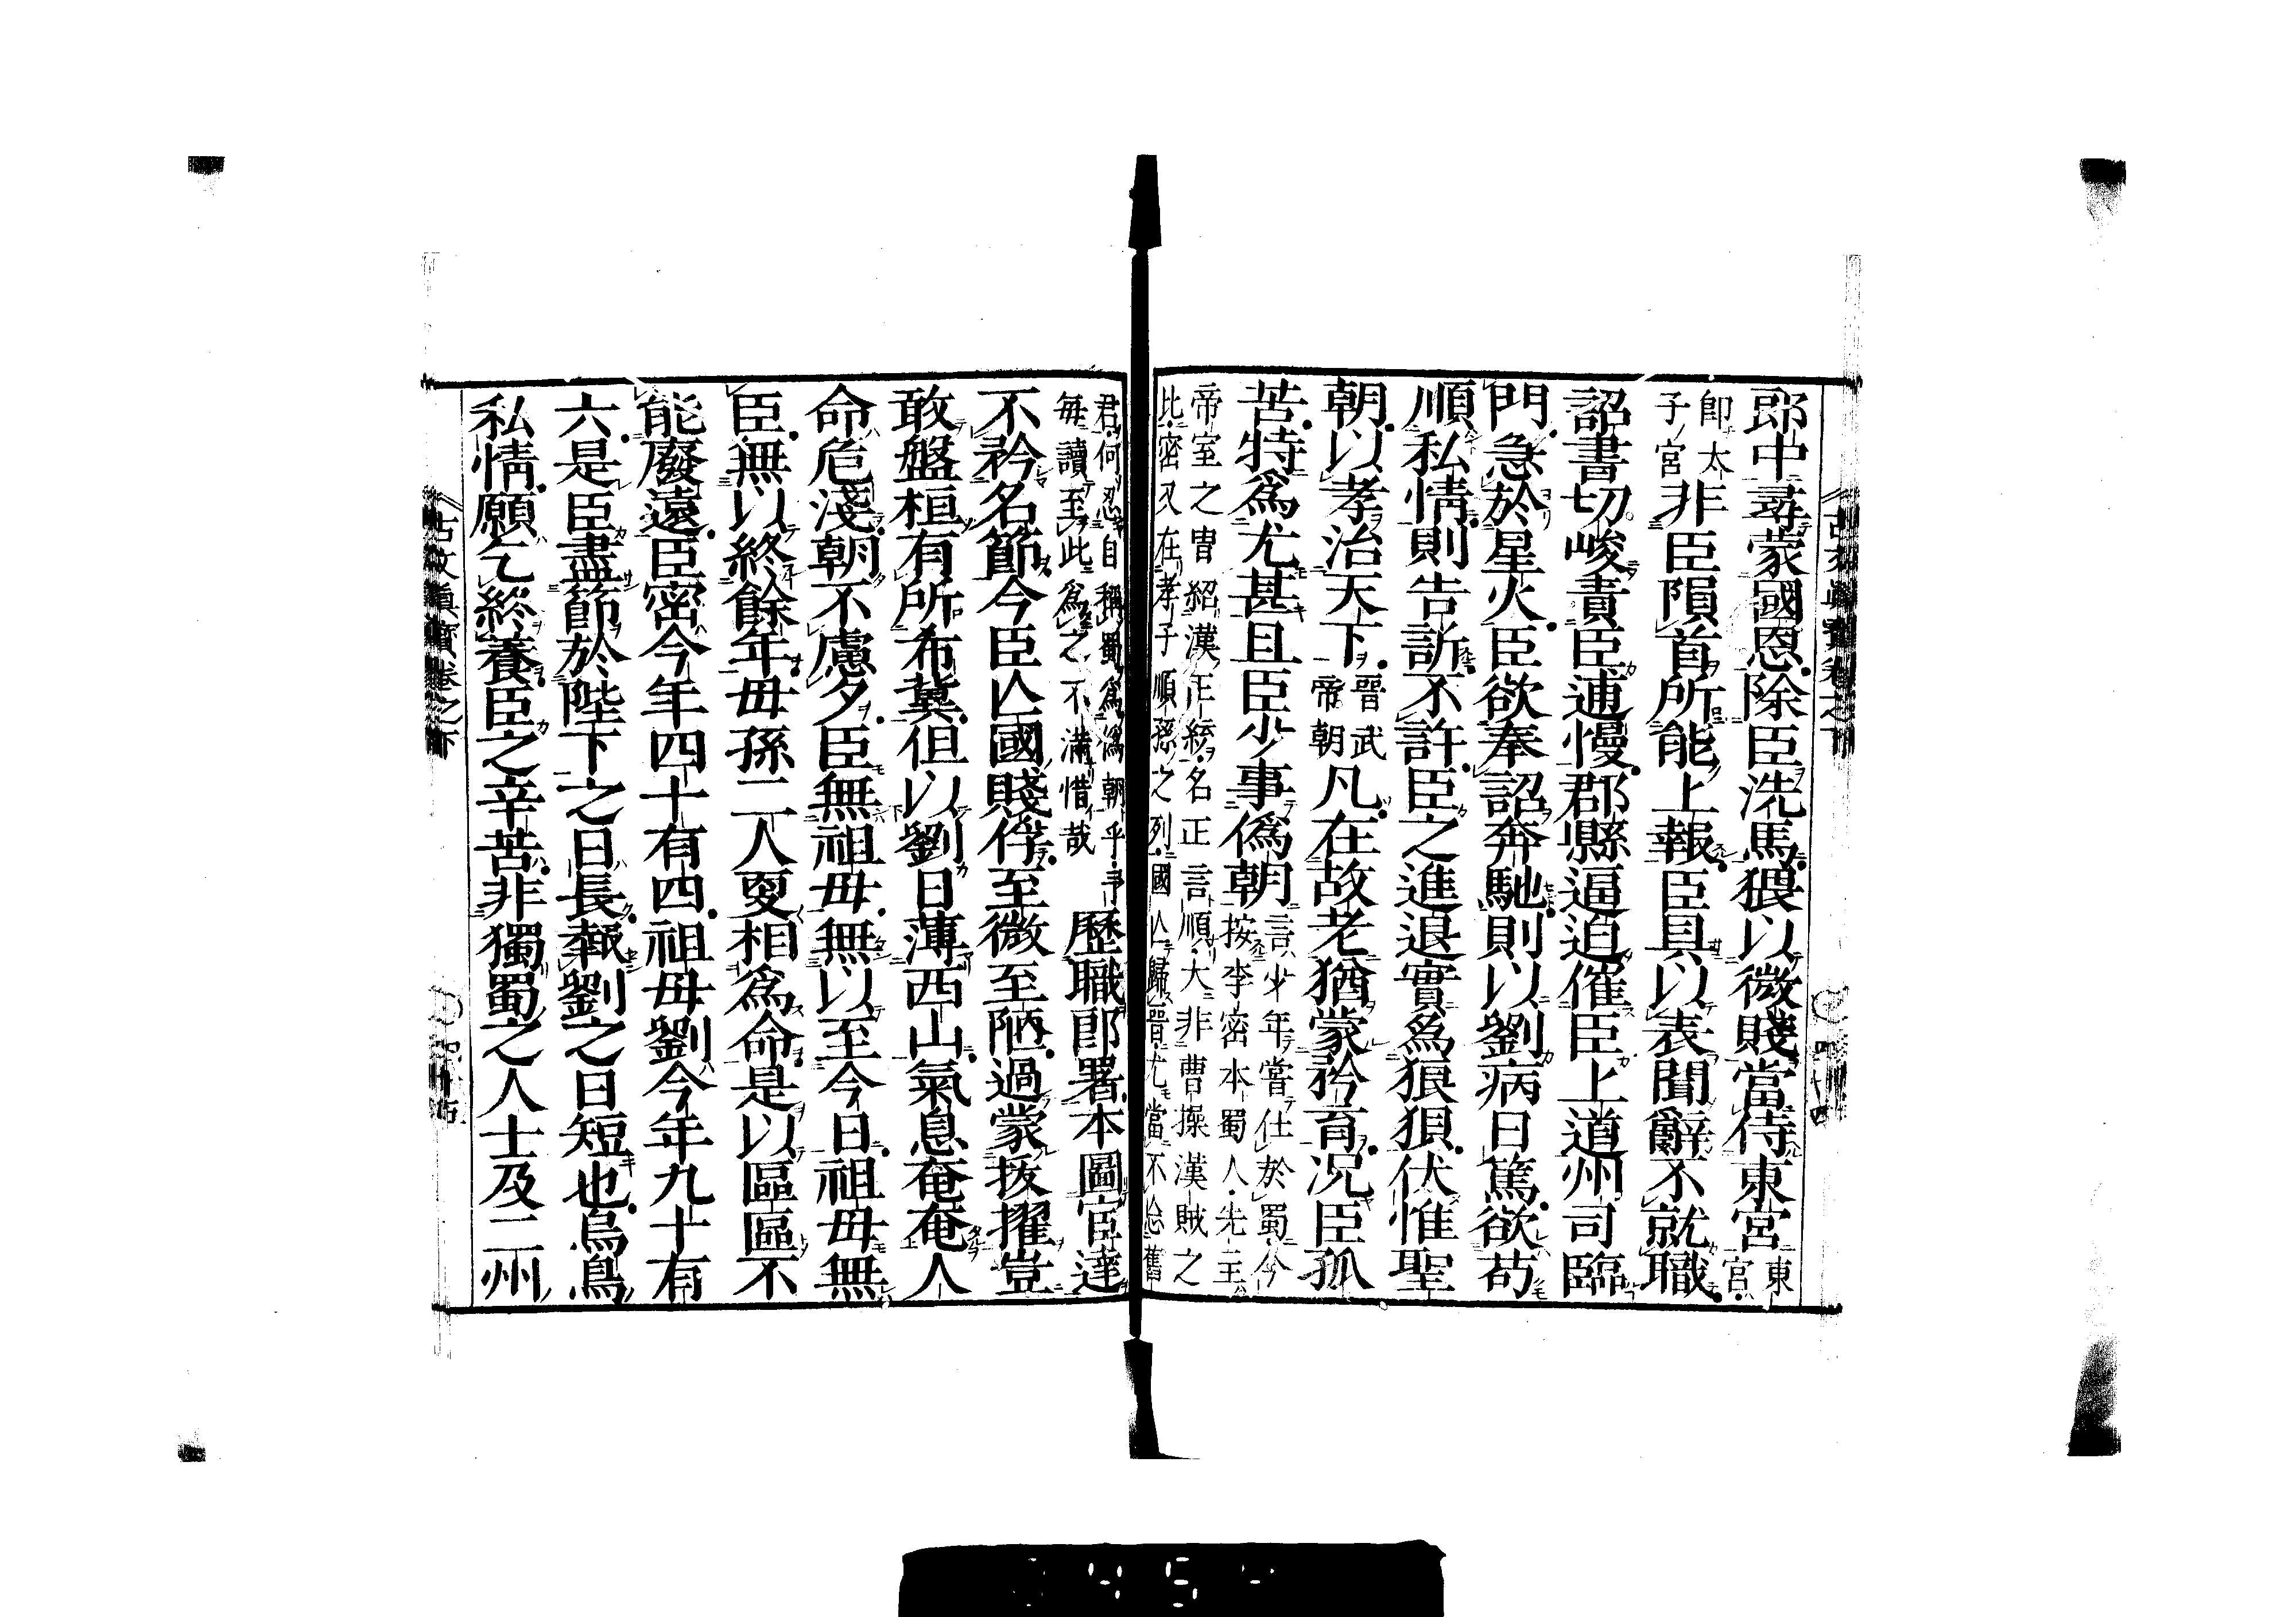 郎中尋蒙國恩除臣洗馬猥以微賤當侍東宮東宮
即太子宮非臣隕首所能上報臣具以表聞辭不就職
詔書切峻責臣逋慢郡縣逼迫催臣上道州司臨
門急於星火臣欲奉詔奔馳則以劉病日篤欲苟
順私情則告訴不許臣之進退實為狼狽伏惟聖
朝以孝治天下晉武帝朝凡在故老猶蒙矜育况臣孤
苦特為尤甚且臣少事偽朝言少年嘗仕於蜀今按李密本蜀人先主
帝室之冑紹漢正統名正言順大非曹操漢賊之
比密又在孝子順孫之列國亾歸晉尤當不忘舊
君何忍自稱蜀為偽朝乎予
每讀至此為之不滿惜哉歷職郎署本圖宦達
不矜名節今臣亾國賤俘至微至陋過蒙拔擢豈
敢盤桓有所希冀但以劉日薄西山氣息奄奄人
命危淺朝不慮夕臣無祖母無以至今日祖母無
臣無以終餘年母孫二人更相為命是以區區不
能廢遠臣密今年四十有四祖母劉今年九十有
六是臣盡節於陛下之日長報劉之日短也烏鳥
私情願乞終養臣之辛苦非獨蜀之人士及二州
古文真寶卷之下